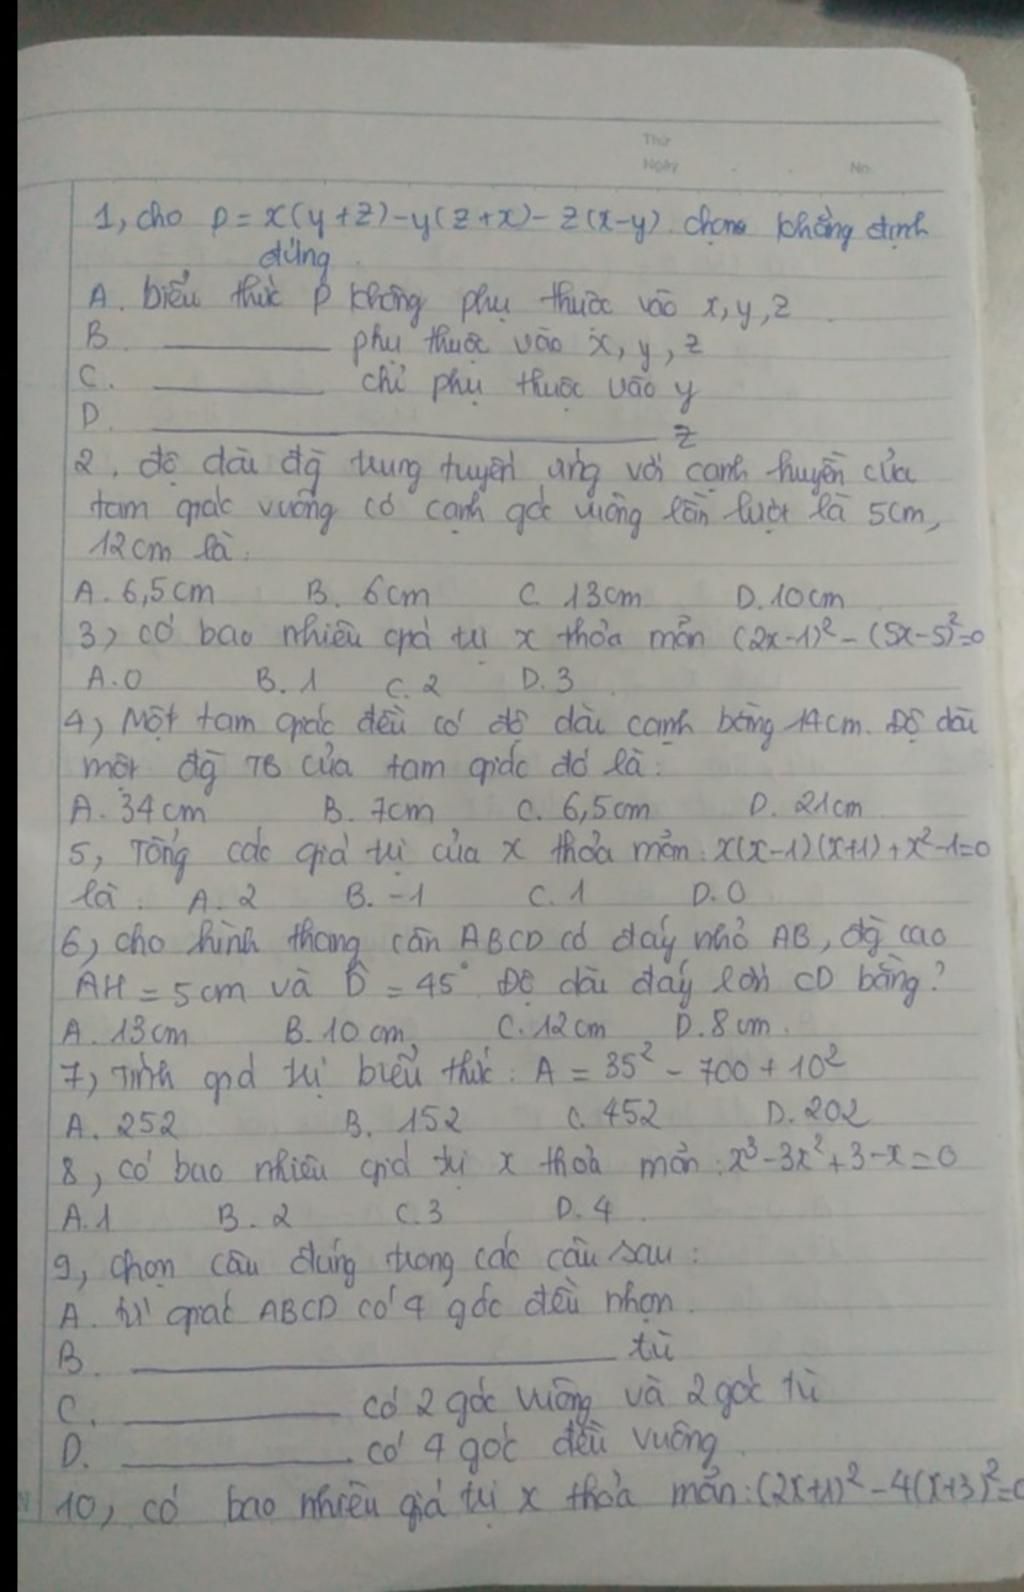 Thứ
Ngày No.
1, cho P = x(y+z)-y(z+x)-z(x-y). chọn khẳng định
đúng
A. biểu thức P không phụ thuộc vào x, y, z.
B. ______ phụ thuộc vào x, y, z
C. ______ chỉ phụ thuộc vào y
D. ______ z
2, độ dài đg trung tuyến ứng với cạnh huyền của
tam giác vuông có cạnh góc vuông lần lượt là 5cm,
12cm là:
A. 6,5cm B. 6cm C. 13cm D. 10cm
3) có bao nhiêu giá trị x thỏa mãn (2x-1)²-(5x-5)²=0
A. 0 B. 1 C. 2 D. 3
4) Một tam giác đều có độ dài cạnh bằng 14cm. Độ dài
một đg TB của tam giác đó là:
A. 34cm B. 7cm C. 6,5cm D. 21cm
5, Tổng các giá trị của x thỏa mãn: x(x-1)(x+1)+x²-1=0
là: A. 2 B. -1 C. 1 D. 0
6) cho hình thang cân ABCD có đáy nhỏ AB, đg cao
AH = 5cm và D̂ = 45° Độ dài đáy lớn CD bằng?
A. 13cm B. 10cm C. 12cm D. 8cm.
7) Tính giá trị biểu thức: A = 35² - 700 + 10²
A. 252 B. 152 C. 452 D. 202
8, có bao nhiêu giá trị x thỏa mãn: x³-3x²+3-x=0
A. 1 B. 2 C. 3 D. 4.
9, chọn câu đúng trong các câu sau:
A. tứ giác ABCD có 4 góc đều nhọn.
B. ______ tù
C. ______ có 2 góc vuông và 2 góc tù
D. ______ có 4 góc đều vuông.
10, có bao nhiêu giá trị x thỏa mãn: (2x+1)²-4(x+3)²=0